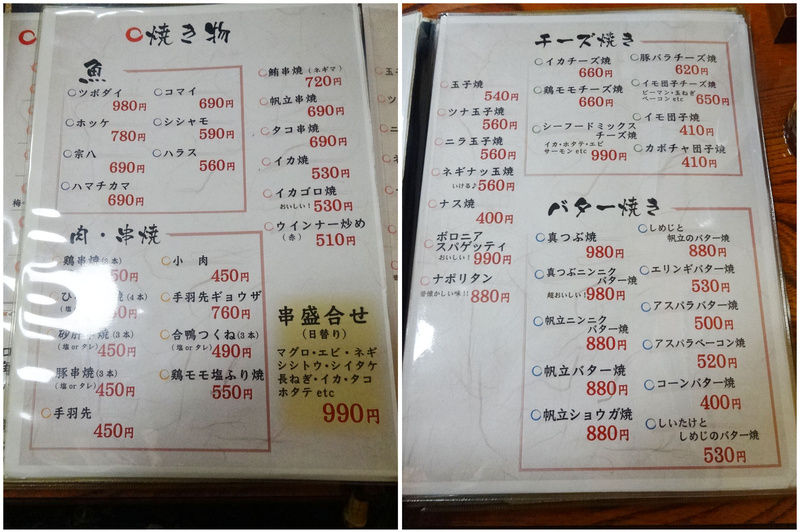 焼き物
魚
ツボダイ
980円
ホッケ
780円
宗八
690円
ハマチカマ
690円
コマイ
690円
シシャモ
590円
ハラス
560円
鮪串焼(ネギマ)
720円
帆立串焼
690円
タコ串焼
690円
イカ焼
530円
イカゴロ焼
おいしい! 530円
ウインナー炒め
(赤) 510円
肉・串焼
鶏串焼(3本)
50円
焼(4本)
(塩 or タレ)
焼(3本)
(塩 or タレ) 450円
豚串焼(3本)
(塩 or タレ) 450円
手羽先
450円
小 肉
450円
手羽先ギョウザ
760円
合鴨つくね(3本)
(塩 or タレ) 490円
鶏モモ塩ふり焼
550円
串盛合せ
(日替り)
マグロ・エビ・ネギ
シシトウ・シイタケ
長ねぎ・イカ・タコ
ホタテ etc
990円
玉子焼
540円
ツナ玉子焼
560円
ニラ玉子焼
560円
ネギナッ玉焼
いける♪ 560円
ナス焼
400円
ボロニア
スパゲッティ
おいしい! 990円
ナポリタン
昔懐かしい味!! 880円
チーズ焼き
イカチーズ焼
660円
鶏モモチーズ焼
660円
シーフードミックス
チーズ焼
イカ・ホタテ・エビ
サーモン etc 990円
豚バラチーズ焼
620円
イモ団子チーズ焼
ピーマン・玉ねぎ
ベーコン etc 650円
イモ団子焼
410円
カボチャ団子焼
410円
バター焼き
真つぶ焼
980円
真つぶニンニク
バター焼
超おいしい! 980円
帆立ニンニク
バター焼
880円
帆立バター焼
880円
帆立ショウガ焼
880円
しめじと
帆立のバター焼
880円
エリンギバター焼
530円
アスパラバター焼
500円
アスパラベーコン焼
520円
コーンバター焼
400円
しいたけと
しめじのバター焼
530円